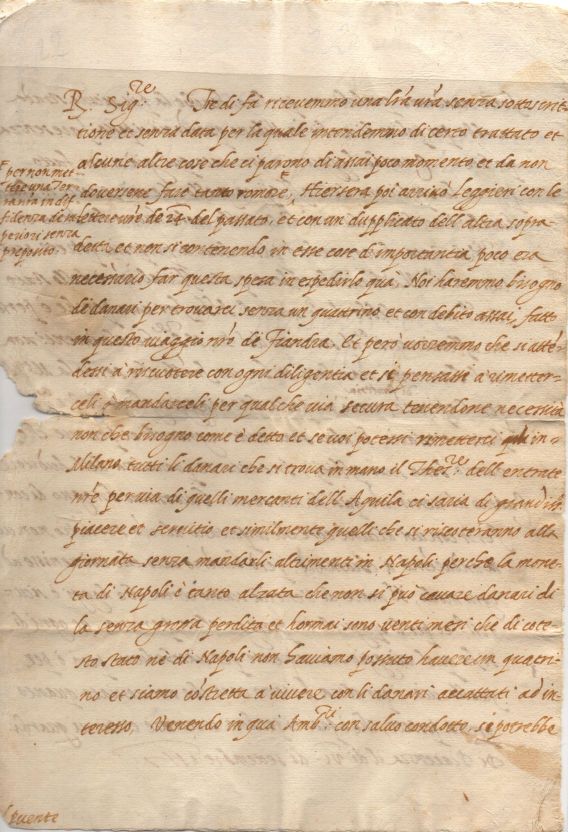 R. Sig.re Tre di fà ricevemmo una lra vra senza sottoscrit-
tione et senza data per la quale intendemmo di certo trattato et
alcune altre cose che ci parono di assai poco momento et da non
doversene fare tanto romore, Hiersera poi arrivò Leggieri con le
per non met
tere una Ter
ra nra in dif
fidenza de su
periori senza
proposito
lettere vre de 24 del passato, et con un dupplicato dell'altra sopra
detta et non si contenendo in esse cose di importantia poco era
necessario far questa spesa in espedirlo quà, Noi haremmo bisogno
de danari per trovarci senza un quattrino et con debito assai, fatto
in questo viaggio nro de Fiandra. Et però vorremmo che si atte-
dessi a riscuotere con ogni diligentia et si pensassi a rimetter-
celi ò mandarceli per qualche via secura tenendone necessità
non che bisogno come è detto et se voi potessi rimetterci in
Milano tutti li danari che si trova in mano il Thes.re dell'entrate
nre per via di quelli mercanti dell'Aquila ci saria di grandis.
piacere et servitio et similmente quelli che si riscoteranno alla
giornata senza mandarli altrimenti in Napoli perche la mone-
ta di Napoli è tanto alzata che non si può cavare danari di
la senza grossa perdita et hormai sono venti mesi che di cote-
sto stato nè di Napoli non haviamo possuto havere un quatri-
no et siamo costretta a vivere con li danari accattati ad in-
teresso. Venendo in qua Amb.ri con salvo condotto, si potrebbe